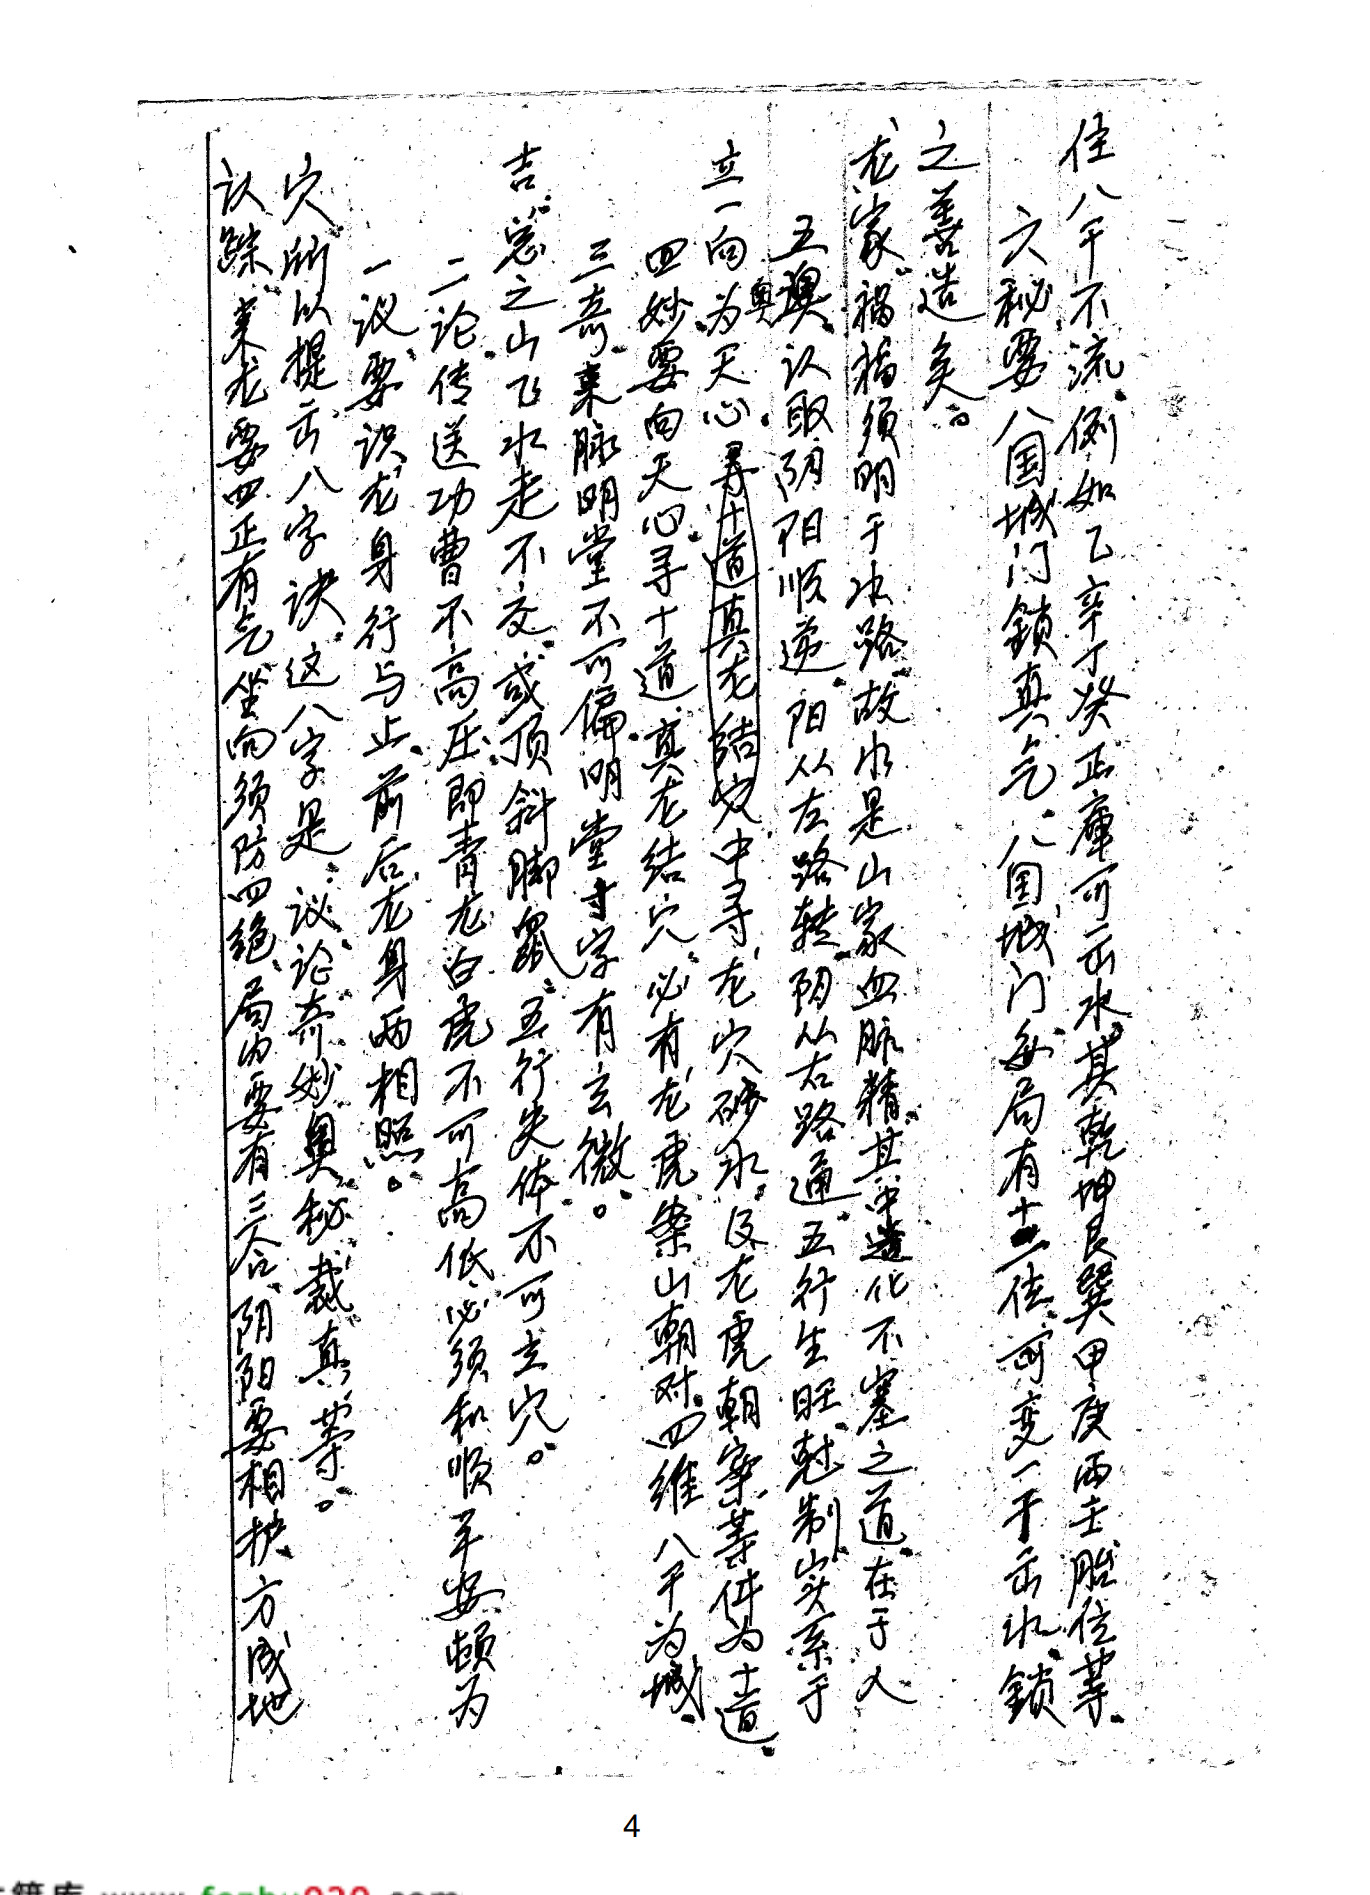 认踪。来龙要四正有气。坐向须防四绝、局内要有三合、阴阳要相护、方成地
穴。所以提出八字诀。这八字是：议、论、奇、妙、奥、秘、裁、真等。
一议、要识龙身行与止、前后龙身两相照。
二论、传送功曹不高压、即青龙白虎不可高低、必须和顺平安顿为
吉。忌之山飞水走不交、或顶斜脚窜、五行失体不可立穴。
三奇、来脉明堂不可偏。明堂等字有玄微。
四妙要向天心寻十道、真龙结穴、必有龙虎案山朝对。四维八干为城、
立一向为天心。寻十道真龙结穴中寻、龙穴砂水。及龙虎朝案等件为十道。
五奥、认取阴阳顺逆。阳从左路转、阴从右路通、五行生旺尅制、实系于
奥
龙家。祸福须明于水路、故水是山家血脉精。其中造化不塞之道、在于人
之善造矣。
六秘要、八国城门鎖真气。八国城门每局有十二位、可变一干出水。鎖
住八干不流。例如乙辛丁癸正庫可出水、其乾坤艮巽甲庚丙壬胎位等。
4